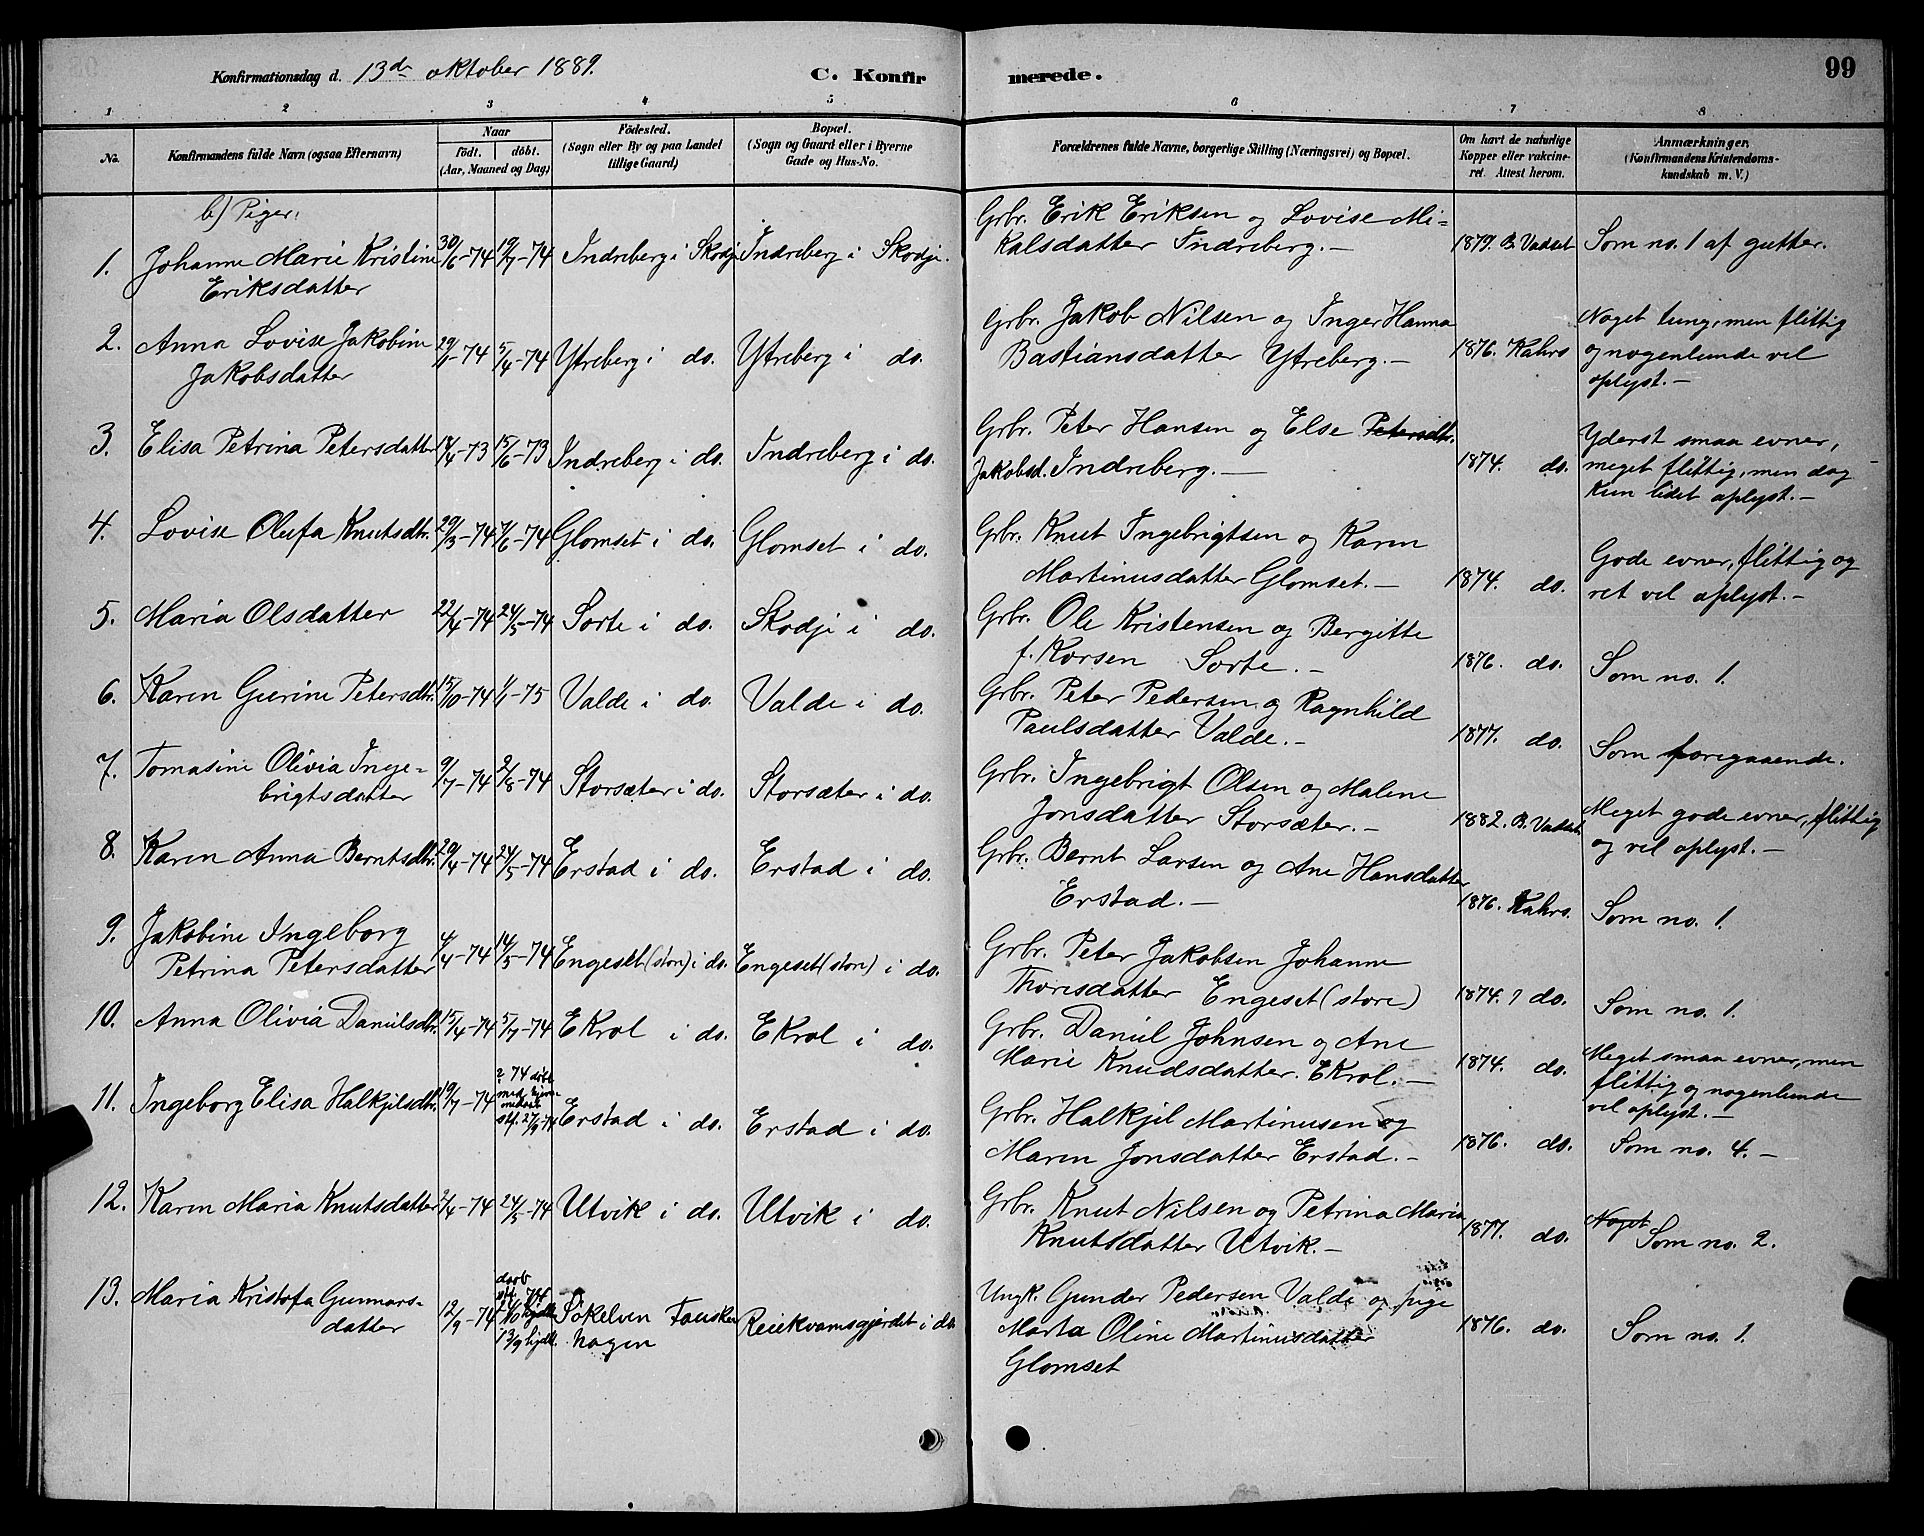 99
Konfirmationsdag d. 13de oktober 1889. C. Konfirmerede.
1 2 3 4 5 6 7 8
No. Konfirmandens fulde Navn (ogsaa Efternavn) Naar født. døbt. (Aar, Maaned og Dag) Födested. (Sogn eller By og paa Landet tillige Gaard) Bopæl. (Sogn og Gaard eller i Byerne Gade og Hus-No. Forældrenes fulde Navne, borgerlige Stilling (Næringsvei) og Bopæl. Om havt de naturlige Kopper eller vakcineret. Attest herom. Anmærkninger. (Konfirmandens Kristendomskundskab m. V.)
b) Piger:
1. Johanne Marie Kristine Eriksdatter 30/6-74 19/7-74 Indreberg i Skodje Indreberg i Skodje. Grbr. Erik Eriksen og Lovise Mikalsdatter Indreberg.- 1879. B. Vadset Som no. 1 af gutter.
2. Anna Lovise Jakobine Jakobsdatter 29/1-74 5/4-74 Ytreberg i do. Ytreberg i do. Grbr. Jakob Nilsen og Inger Hanna Bastiansdatter Ytreberg.- 1876. Kahrs Noget tung, men flittig og nogenlunde vel oplyst.-
3. Elisa Petrina Petersdatter 14/4-73 15/6-73 Indreberg i do. Indreberg i do. Grbr. Peter Hansen og Else Petersdtr. Jakobsd. Indreberg.- 1874. do. Yderst smaa evner, meget flittig, men dog kun lidet oplyst.-
4. Lovise Olufa Knutsdtr. 29/3-74 7/6-74 Glomset i do. Glomset i do. Grbr. Knut Ingebrigtsen og Karen Martinusdatter Glomset.- 1874. do. Gode evner, flittig og ret vel oplyst.-
5. Maria Olsdatter 22/4-74 24/5-74 Sorte i do. Skodje i do. Grbr. Ole Kristensen og Bergitte f. Korsen Sorte.- 1876. do. Som no. 1.
6. Karen Gurine Petersdtr. 15/10-74 1/1-75 Valde i do. Valde i do. Grbr. Peter Pedersen og Ragnhild Paulsdatter Valde.- 1877. do. Som foregaaende.
7. Tomasine Olivia Ingebrigtsdatter 9/7-74 2/8-74 Storsæter i do. Storsæter i do. Grbr. Ingebrigt Olsen og Malene Jonsdatter Storsæter.- 1882. B. Vadset Meget gode evner, flittig og vel oplyst.-
8. Karen Anna Berntsdtr. 29/4-74 24/5-74 Erstad i do. Erstad i do. Grbr. Bernt Larsen og Ane Hansdatter Erstad.- 1876. Kahrs. Som no. 1.
9. Jakobine Ingeborg Petrina Petersdatter 4/4-74 14/5-74 Engeset (store) i do. Engeset (store) i do. Grbr. Peter Jakobsen Johanne Thoresdatter Engeset (store) 1874. ? do. Som no. 1.
10. Anna Olivia Danielsdtr. 15/4-74 5/7-74 Ekrol i do. Ekrol i do. Grbr. Daniel Johnsen og Ane Marie Knudsdatter. Ekrol.- 1874. do. Meget smaa evner, men flittig og nogenlunde vel oplyst.-
11. Ingeborg Elisa Halkjelsdtr. 19/7-74 ? 74 stf. 27/9-74 Erstad i do. Erstad i do. Grbr. Halkjel Martinusen og Maren Jonsdatter Erstad.- 1876. do. Som no. 4.-
12. Karen Maria Knutsdatter 2/4-74 24/5-74 Utvik i do. Utvik i do. Grbr. Knut Nilsen og Petrina Maria Knutsdatter Utvik.- 1877. do. Noget Som no. 2.
13. Maria Kristofa Gunnarsdatter 12/9-74 daab 13/9 hjdt. Søkelven Fauskenhagen Reiekvamsgjerdet i do. Ungk. Gunder Pedersen Valde og pige Marta Oline Martinusdatter Glomset 1876. do. Som no. 1.